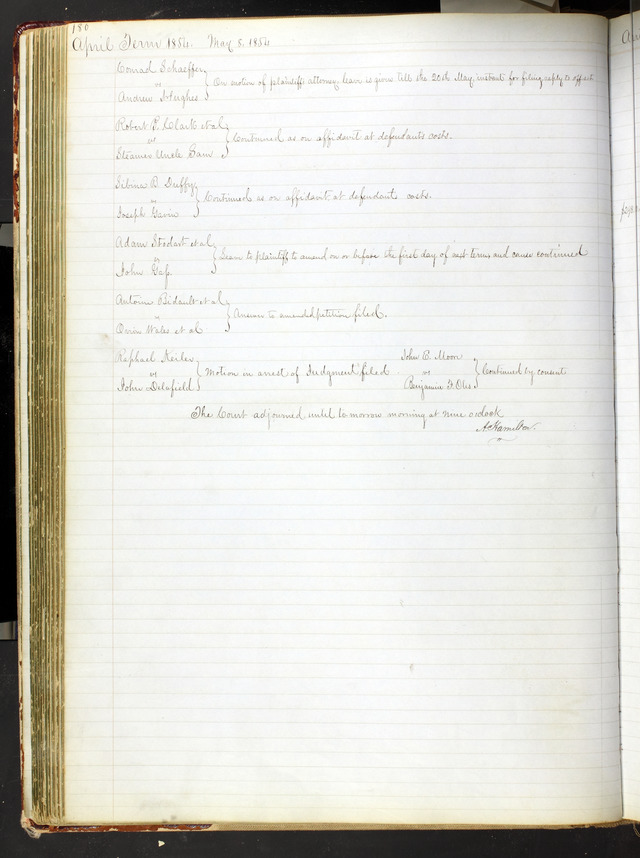 180
April Term 1854. May 8. 1854
Conrad Schaeffer
vs
Andrew Hughes
On motion of plaintiffs attorney leave is given till the 20th May instant for filing reply to offset
Robert P. Clark et al
vs
Steamer Uncle Sam
Continued as on affidavit at defendants costs.
Sibina B. Duffy
vs
Joseph Gavin
Continued as on affidavit at defendants costs.
Adam Stodart et al
vs
John
Leave to plaintiffs to amend on or before the first day of next term and cause continued
Antoine Bidault et al
vs
Orrin Wales et al
Answer to amended petition filed.
Raphael Keiler
vs
John Delafield
Motion in arrest of Judgment filed
John C. Moon
vs
Benjamin F.
Continued by consent
The Court adjourned until to morrow morning at nine o'clock
A. Hamilton.